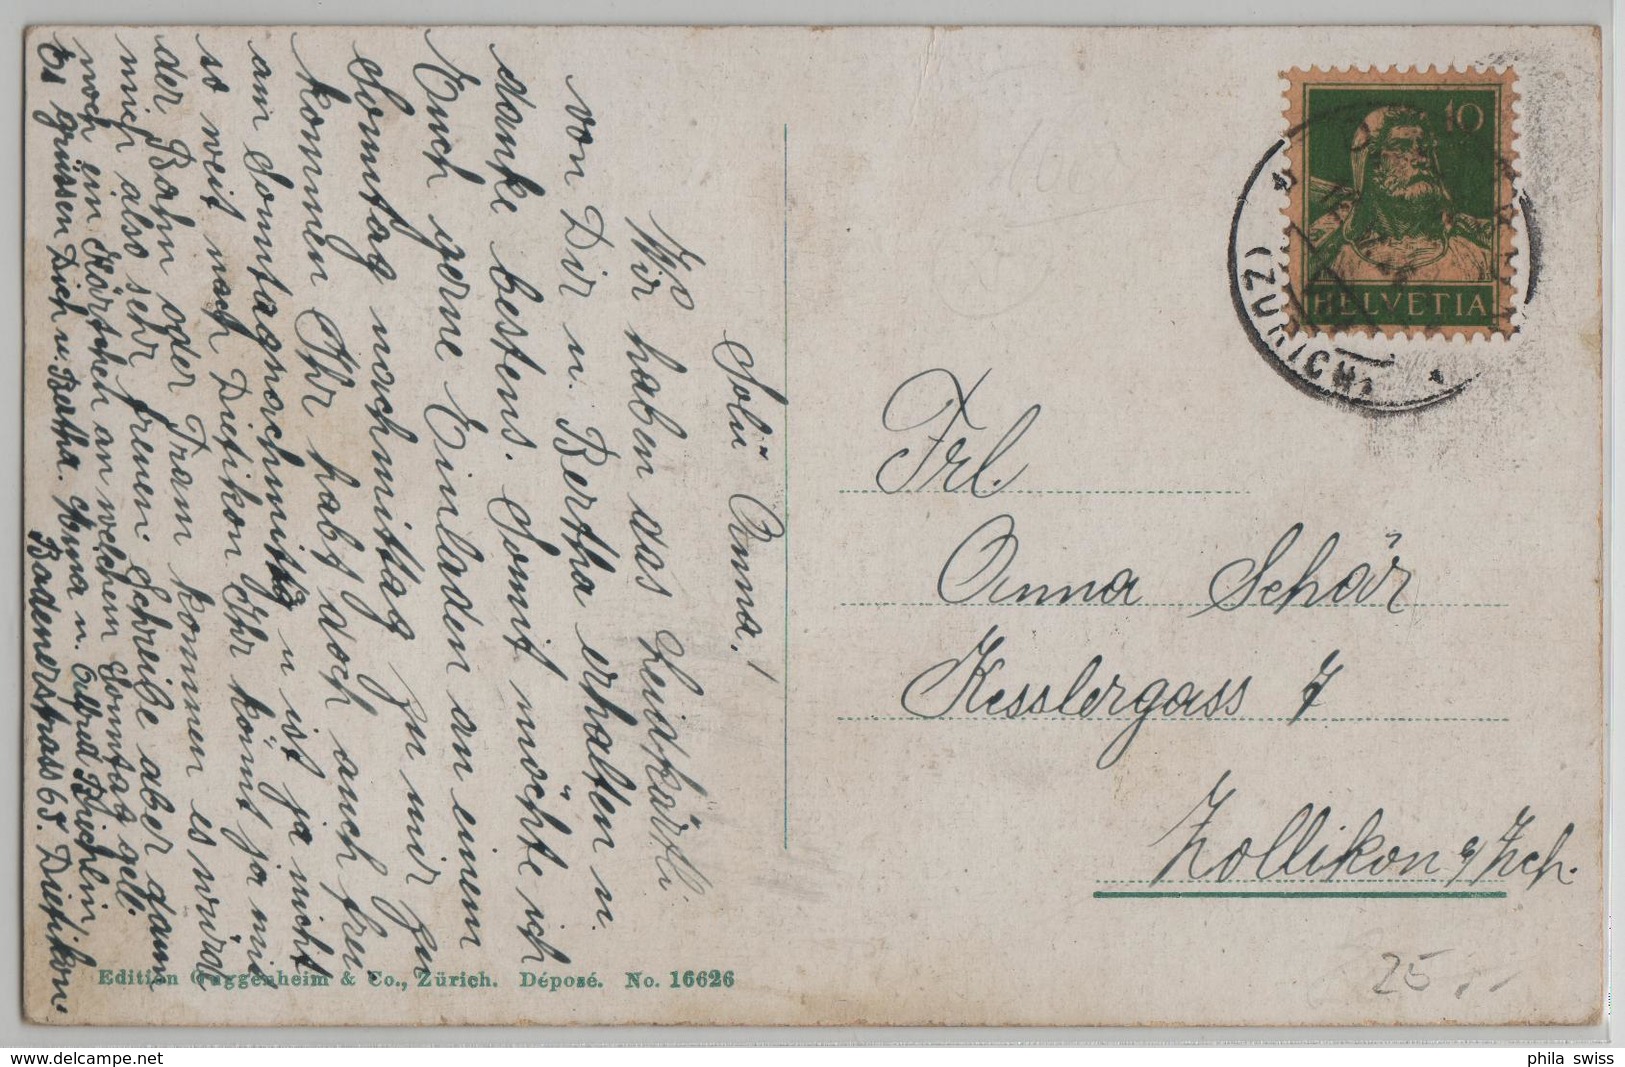 Solü Anna!
Wir haben das Leidkärtli
von Dir u. Bertha erhalten u.
danke bestens. Somit möchte ich
Euch gerne Einladen an einem
Somntag nachmittag zu mir zu
kommen Ihr habt doch auch frei
am Somntagnachmittag u ist ja nicht
so weit nach Dietikon Ihr könnt ja mit
der Bahn oder Tram kommen es würde
mich also sehr freuen Schreibe aber dann
noch ein Kärtchen an welchem Somntag gell.
Es grüssen Dich u. Bertha. Anna u. Alfred
Badenerstrass 65. Dietikon.
Frl.
Anna Schär
Kesslergass 7
Zollikon b/Zch.
10
HELVETIA
ZÜRICH
Edition Guggenheim & Co., Zürich. Déposé. No. 16626
25
phila swiss